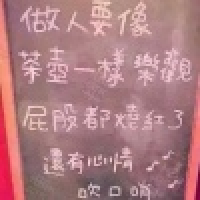 做人要像
茶壺一樣樂觀
屁股都燒紅了
還有心情
吹口哨